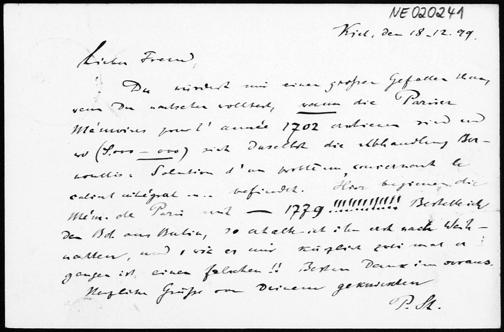 NE020241
Kiel, den 18-12.99.
Lieber Freund,
Du würdest mir einen großen Gefallen thun,
wenn Du nachsehen wolltest, wann die Pariser
Mémoires pour l'année 1702 erschienen sind und
wo (S.000—000) sich daselbst die Abhandlung Ber-
noullis: Solution d'un problème concernant le
calcul intégral ... befindet. Hier beginnen die
Mém. de Paris mit — 1779!!!!!!!!!! Bestelle ich
den Bd. aus Berlin, so erhalte ich ihn erst nach Weih-
nachten, und, wie es mir kürzlich zwei mal er
gangen ist, einen falschen!! Besten Dank im voraus.
Herzliche Grüße von Deinem geknickten
P. St.